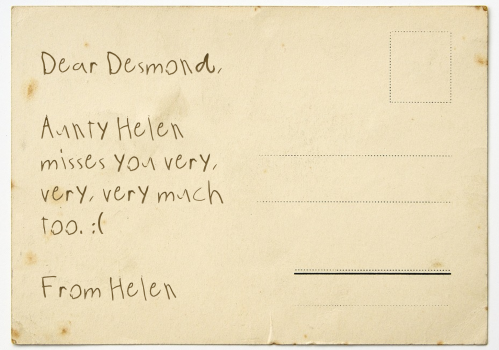 Dear Desmond,
Aunty Helen
misses you very,
very, very much
too. :(
From Helen